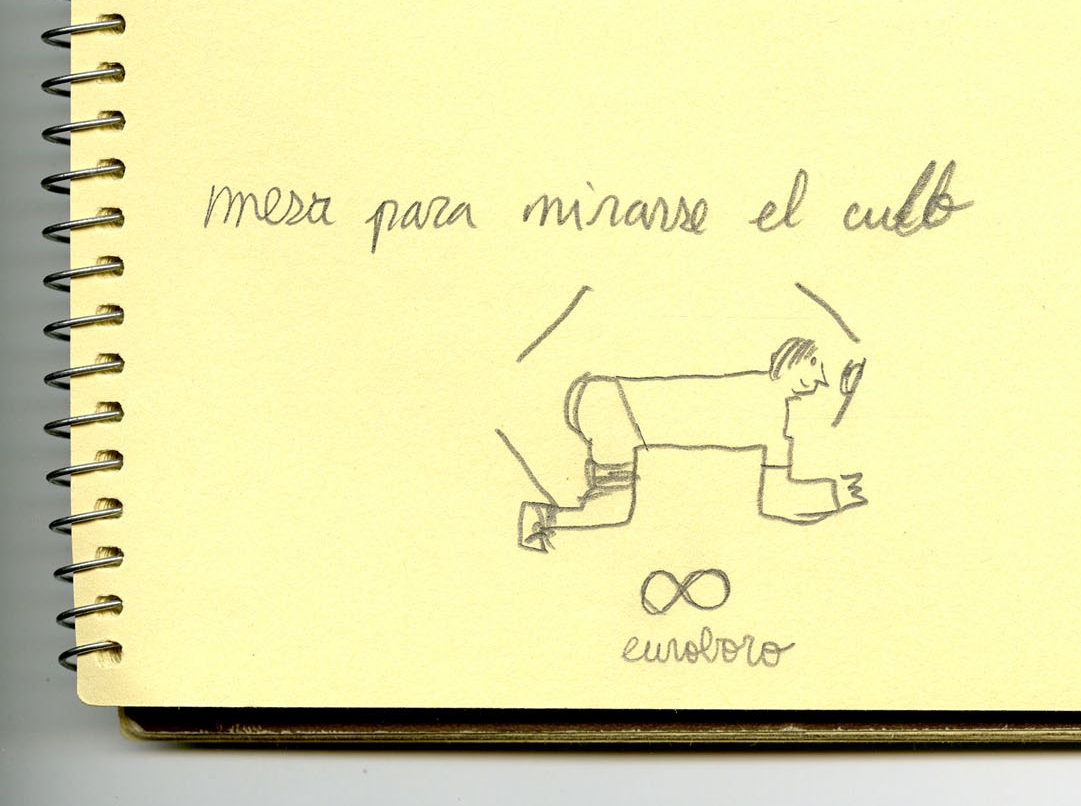 mesa para mirarse el culo
euroboro